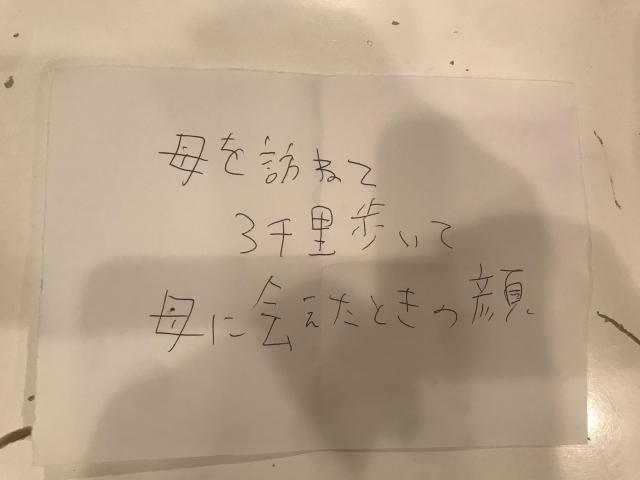 母を訪ねて
3千里歩いて
母に会えたときの顔、